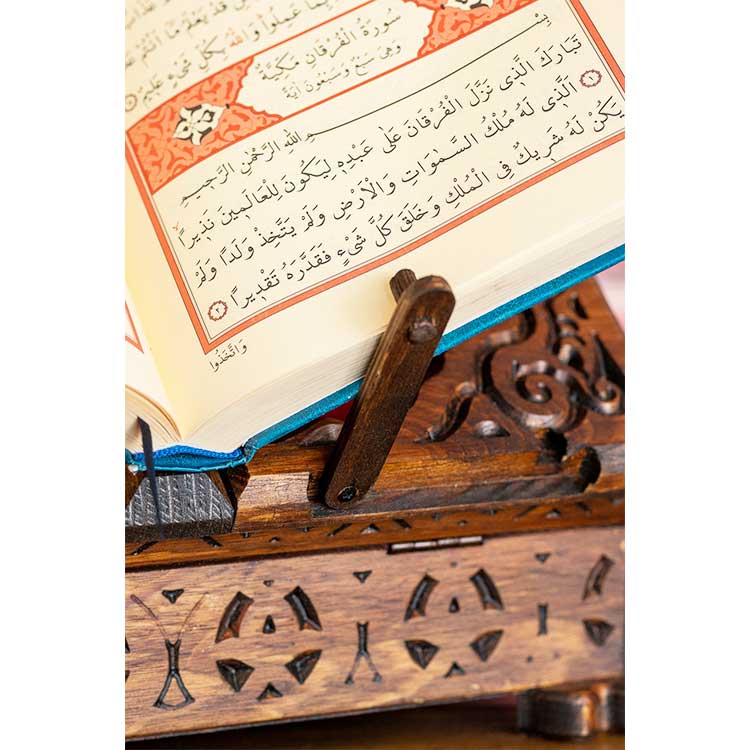 قَدْ يَعْلَمُ مَٓا اَنْتُمْ
بِمَا عَمِلُواۜ وَاللّٰهُ بِكُلِّ شَيْءٍ عَل۪يمٌ
سُورَةُ الْفُرْقَانِ مَكِّيَّةٌ
وَهِيَ سَبْعٌ وَسَبْعُونَ اٰيَةً
بِسْمِ اللّٰهِ الرَّحْمٰنِ الرَّح۪يمِ
تَبَارَكَ الَّذ۪ي نَزَّلَ الْفُرْقَانَ عَلٰى عَبْدِه۪ لِيَكُونَ لِلْعَالَم۪ينَ نَذ۪يراًۙ ١
اَلَّذ۪ي لَهُ مُلْكُ السَّمٰوَاتِ وَالْاَرْضِ وَلَمْ يَتَّخِذْ وَلَداً وَلَمْ
يَكُنْ لَهُ شَر۪يكٌ فِي الْمُلْكِ وَخَلَقَ كُلَّ شَيْءٍ فَقَدَّرَهُ تَقْد۪يراً ٢
وَاتَّخَذُوا